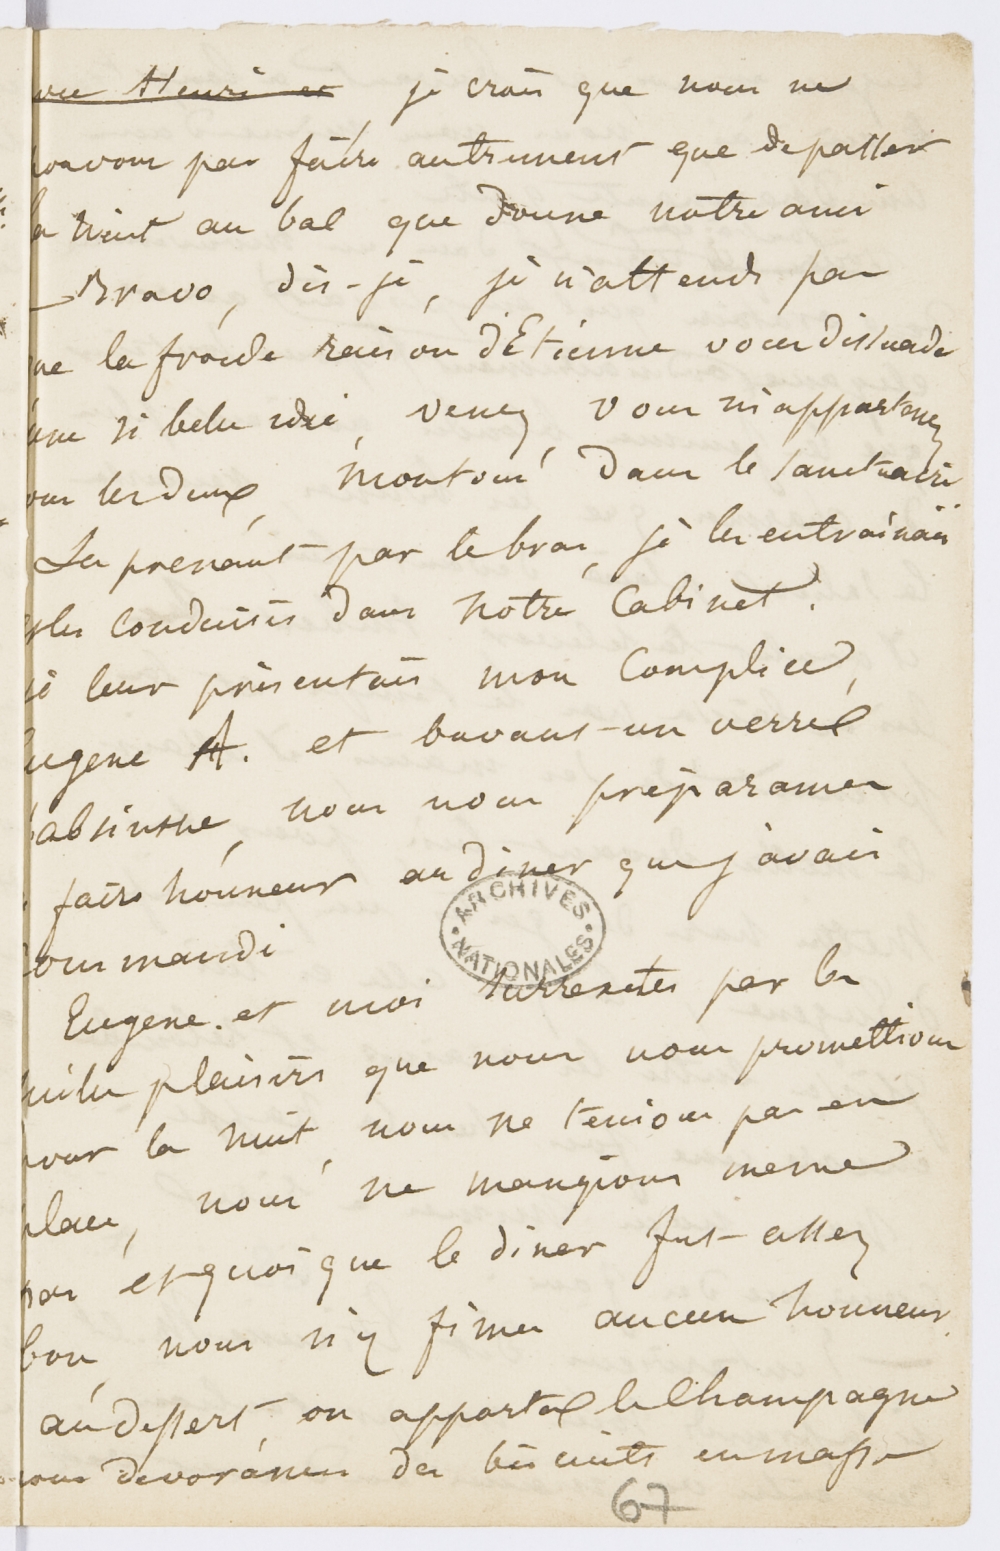 ou Henri et je crois que nous ne
pouvons pas faire autrement que de passer
la nuit au bal que donne notre ami
_ Bravo, dis-je, je n'attends pas
que la froide raison d'Etienne vous dissuade
d'une si belle idée, venez vous m'appartenez
tous les deux, montons dans le sanctuaire
Les prenant par le bras, je les entrainais
et les conduisis dans notre Cabinet.
je leur présentais mon Complice,
Eugene A. et buvant un verre
d'absinthe, nous nous préparames
à faire honneur au diner que j'avais
commandé
Eugene et moi surrexités par les
mille plaisirs que nous nous promettions
pour la nuit, nous ne tenions pas en
place, nous ne mangions meme
pas et quoi que le diner fut assez
bon, nous n'y fimes aucun honneur.
au dessert, on apporta le Champagne
nous devorames des biscuits en masse
ARCHIVES
NATIONALES
67